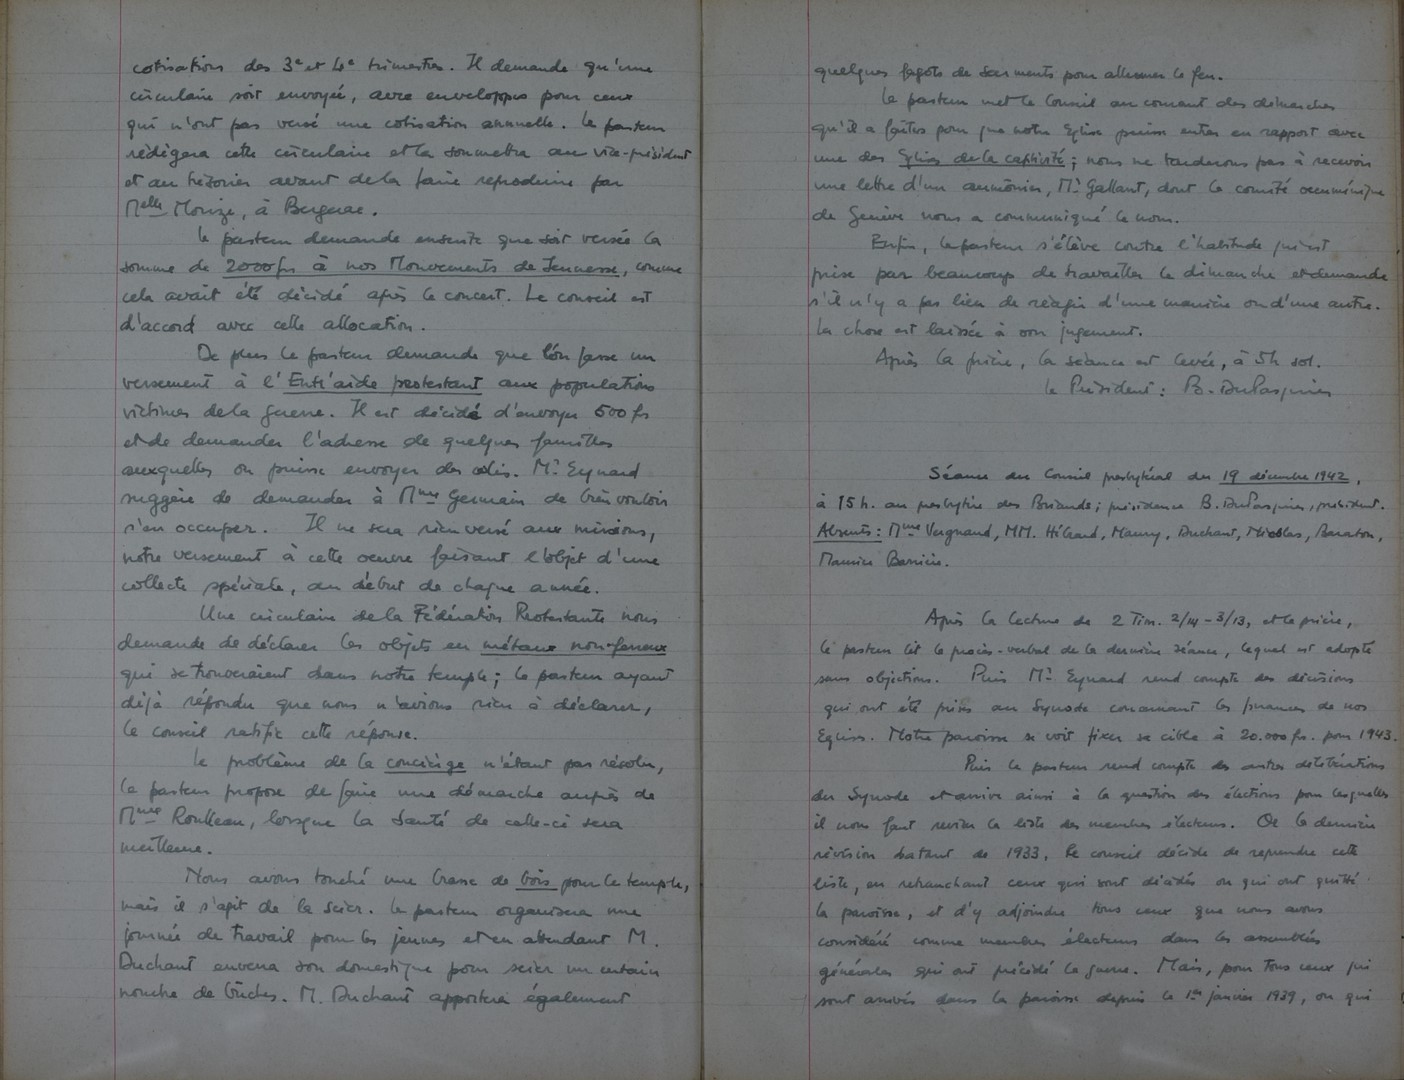 cotisations des 3e et 4e trimestres. Il demande qu'une
circulaire soit envoyée, avec enveloppes pour ceux
qui n'ont pas versé une cotisation annuelle. Le pasteur
rédigera cette circulaire et la soumettra au vice-président
et au trésorier avant de la faire reproduire par
Melle Morize, à Bergerac.
Le pasteur demande ensuite que soit versée la
somme de 2000 frs à nos Mouvements de Jeunesse, comme
cela avait été décidé après le concert. Le conseil est
d'accord avec cette allocation.
De plus le pasteur demande que l'on fasse un
versement à l'Entr'aide protestant aux populations
victimes de la guerre. Il est décidé d'envoyer 500 frs
et de demander l'adresse de quelques familles
auxquelles on puisse envoyer des colis. Mr Eynard
suggère de demander à Mme Germain de bien vouloir
s'en occuper. Il ne sera rien versé aux missions,
notre versement à cette oeuvre faisant l'objet d'une
collecte spéciale, au début de chaque année.
Une circulaire de la Fédération Protestante nous
demande de déclarer les objets en métaux non-ferreux
qui se trouveraient dans notre temple; le pasteur ayant
déjà répondu que nous n'avions rien à déclarer,
le conseil ratifie cette réponse.
Le problème de la concierge n'étant pas résolu,
le pasteur propose de faire une démarche auprès de
Mme Roulleau, lorsque la santé de celle-ci sera
meilleure.
Nous avons touché une brasse de bois pour le temple,
mais il s'agit de la scier. Le pasteur organisera une
journée de travail pour les jeunes et en attendant M.
Duchant enverra son domestique pour scier un certain
nombre de bûches. M. Duchant apportera également
quelques fagots de sarments pour allumer le feu.
Le pasteur met le Conseil au courant des démarches
qu'il a faites pour que notre Eglise puisse entrer en rapport avec
une des Eglises de la captivité; nous ne tarderons pas à recevoir
une lettre d'un aumônier, Mr Gallant, dont le comité oecuménique
de Genève nous a communiqué le nom.
Enfin, le pasteur s'élève contre l'habitude qui est
prise par beaucoup de travailler le dimanche et demande
s'il n'y a pas lieu de réagir d'une manière ou d'une autre.
La chose est laissée à son jugement.
Après la prière, la séance est levée, à 5h sol.
Le Président: B. DuPasquier
Séance du Conseil presbytéral du 19 décembre 1942,
à 15 h. au presbytère des Briands; présidence B. DuPasquier, président.
Absents: Mme Vergnaud, MM. Hilraud, Maury, Duchant, Nicolas, Baraton,
Maurice Barrière.
Après la lecture de 2 Tim. 2/14 - 3/13, et la prière,
le pasteur lit le procès-verbal de la dernière séance, lequel est adopté
sans objections. Puis Mr Eynard rend compte des décisions
qui ont été prises au Synode concernant les finances de nos
Eglises. Notre paroisse se voit fixer sa cible à 20.000 frs. pour 1943.
Puis le pasteur rend compte des autres délibérations
du Synode et arrive ainsi à la question des élections pour lesquelles
il nous faut revoir la liste des membres électeurs. Or la dernière
révision datant de 1933, le conseil décide de reprendre cette
liste, en retranchant ceux qui sont décédés ou qui ont quitté
la paroisse, et d'y adjoindre tous ceux que nous avons
considéré comme membres électeurs dans les assemblées
générales qui ont précédé la guerre. Mais, pour tous ceux qui
sont arrivés dans la paroisse depuis le 1er janvier 1939, ou qui